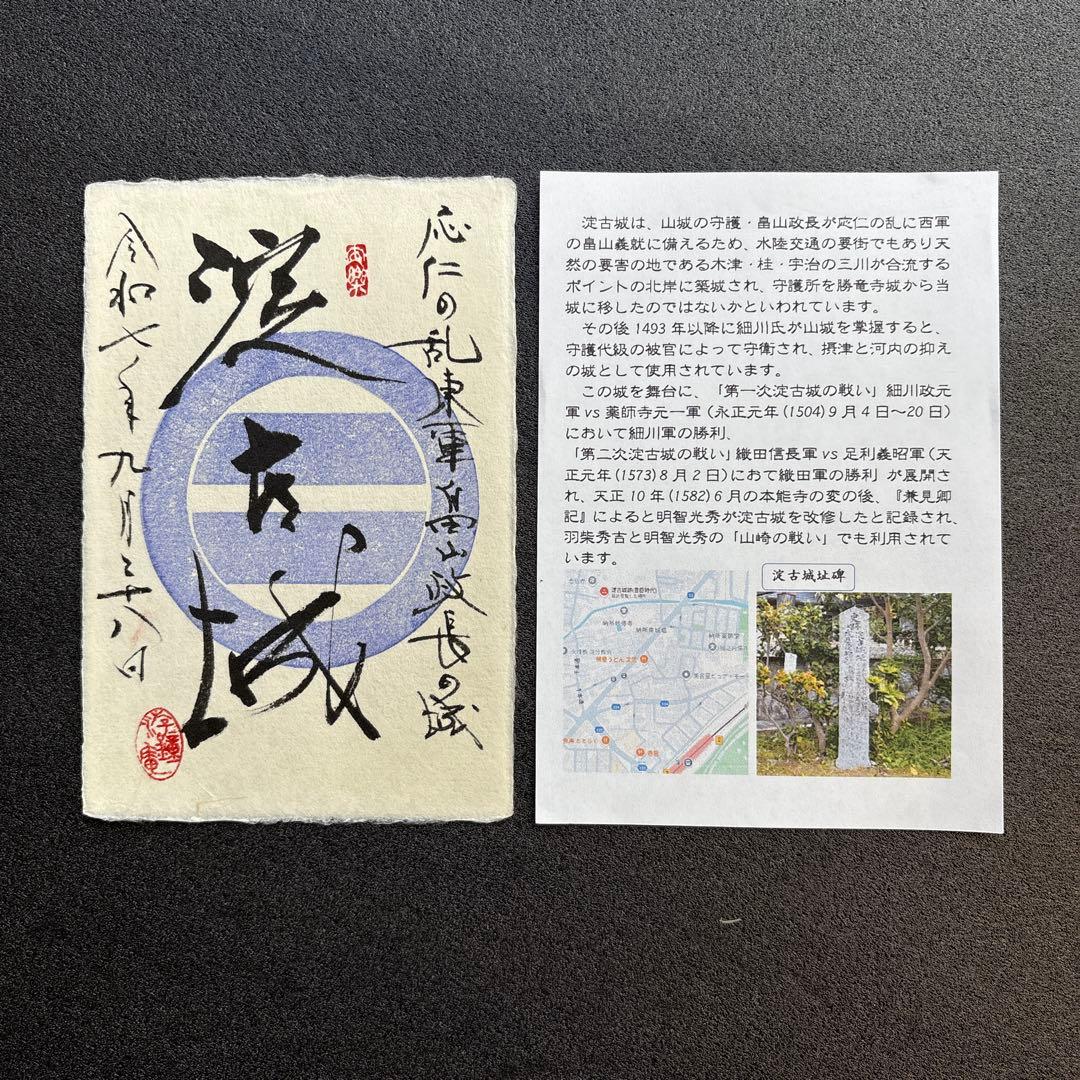 応仁の乱東軍畠山政長の城
淀古城
令和七年九月二十八日
淀古城は、山城の守護・畠山政長が応仁の乱に西軍
の畠山義就に備えるため、水陸交通の要衝でもあり天
然の要害の地である木津・桂・宇治の三川が合流する
ポイントの北岸に築城され、守護所を勝竜寺城から当
城に移したのではないかといわれています。
その後1493年以降に細川氏が山城を掌握すると、
守護代級の被官によって守衛され、摂津と河内の抑え
の城として使用されています。
この城を舞台に、「第一次淀古城の戦い」細川政元
軍vs薬師寺元一軍(永正元年(1504)9月4日~20日)
において細川軍の勝利、
「第二次淀古城の戦い」織田信長軍vs足利義昭軍(天
正元年(1573)8月2日)におて織田軍の勝利 が展開さ
れ、天正10年(1582)6月の本能寺の変の後、『兼見卿
記』によると明智光秀が淀古城を改修したと記録され、
羽柴秀吉と明智光秀の「山崎の戦い」でも利用されて
います。
淀古城址碑